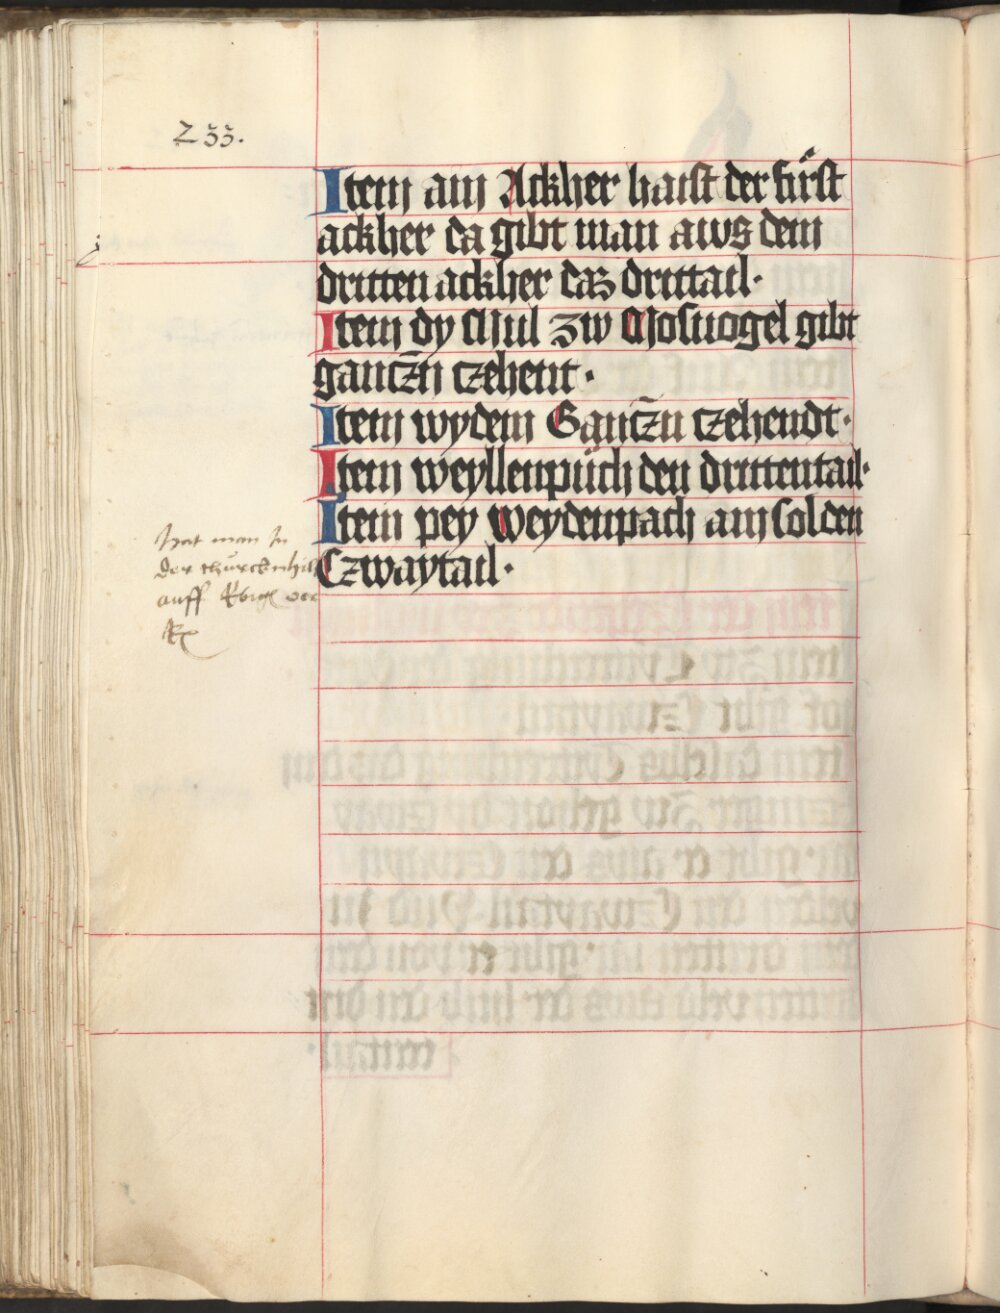 233.
Item am Ackher haist der fürst
ackher da gibt man aws dem
dritten ackher daz drittail·
Item dy Mul zw Mosuogel gibt
gancz̄n czehent·
Item wydem Gancz̄n czehendt·
Item weyllenpůch den drittentail·
Item pey weydenpach am solden
Czwaytail·
hat man In
der
auff